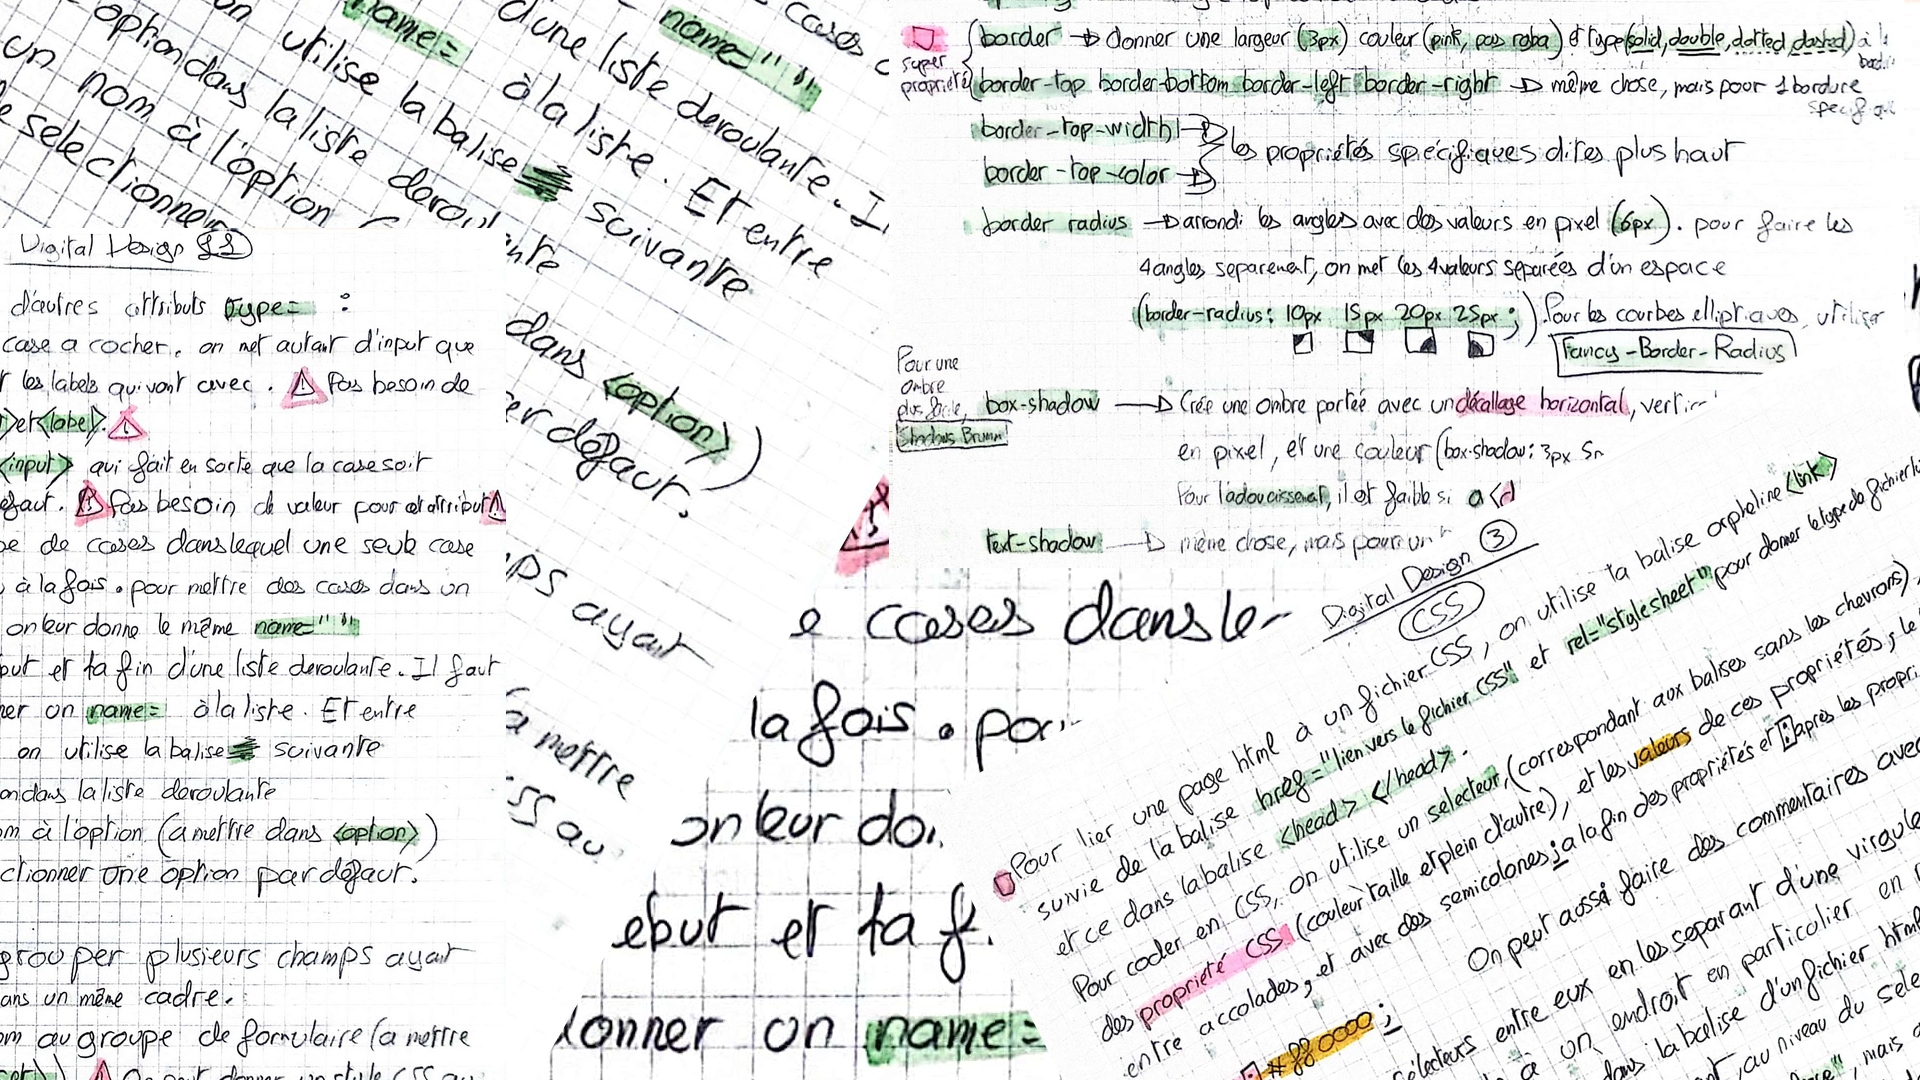 option dans la liste
un nom à l'option
selectionner
utilise la balise
name=
à la liste. Et entre
d'une liste deroulante. I
name=" "
suivante
dans <option>)
defaut.
ayant
a mettre
cases
Digital Design
d'autres attributs type= :
case a cocher. on met autant d'input que
les labels qui vont avec. ⚠ Pas besoin de
et <label>. ⚠
<input> qui fait en sorte que la case soit
⚠ Pas besoin de valeur pour cet attribut ⚠
de cases dans lequel une seule case
à la fois. pour mettre des cases dans un
on leur donne le même name=" "
et la fin d'une liste deroulante. Il faut
un name= à la liste. Et entre
on utilise la balise suivante
dans la liste deroulante
à l'option (a mettre dans <option>)
une option par defaut.
grouper plusieurs champs ayant
dans un même cadre.
au groupe de formulaire (a mettre
e cases dans le
la fois. pour
on leur do
ebut et la f
donner un name=
super
propriété
border → donner une largeur (3px) couleur (pink, pas rgba) et type (solid, double, dotted, dashed) à la
border-top border-bottom border-left border-right → même chose, mais pour 1 bordure
border-top-width →
border-top-color →
les propriétés spécifiques dites plus haut
border radius → arrondi les angles avec des valeurs en pixel (6px). pour faire les
4 angles separement, on met les 4 valeurs separées d'un espace
(border-radius: 10px 15px 20px 25px ;) Pour les courbes elliptiques, utiliser
Fancy-Border-Radius
Pour une
ombre
plus facile,
Shadows Brumm
box-shadow → Crée une ombre portée avec un décallage horizontal,
en pixel, et une couleur (box-shadow: 3px 5
Pour l'adoucissement, il est faible si a
text-shadow → même chose, mais pour un
Digital Design 3
CSS
Pour lier une page html à un fichier CSS, on utilise la balise orpheline <link>
suivie de la balise href="lien vers le fichier CSS" et rel="stylesheet" pour donner le type de fichier
et ce dans la balise <head> </head>.
Pour coder en CSS, on utilise un selecteur, (correspondant aux balises sans les chevrons),
des propriété CSS (couleur taille et plein d'autre), et les valeurs de ces propriétés; le
entre accolades, et avec des semicolones ; a la fin des propriétés et : après les propri
#ff0000 ;
On peut aussi faire des commentaires avec
sélecteurs entre eux en les separant d'une virgule
à un endroit en particulier en
dans la balise d'un fichier html
au niveau du sele
mais